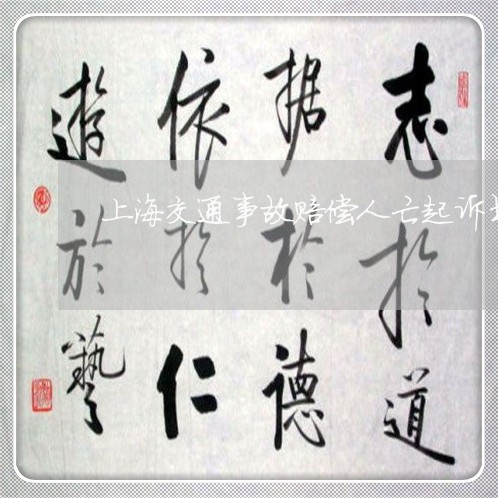 志於道
据於德
依於仁
遊於藝
上海交通事故赔偿人亡起诉